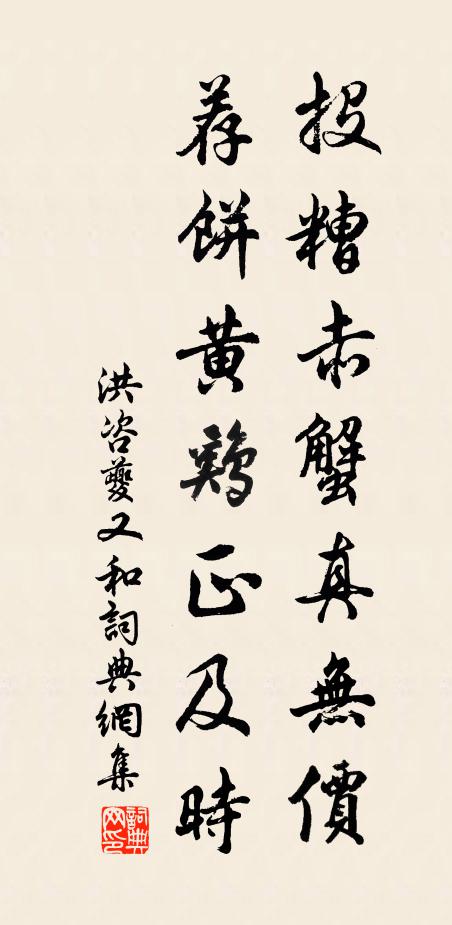 投糟赤蟹真無價
荐餅黄鷄正及時
洪咨夔又和詞典網集
詞典網印